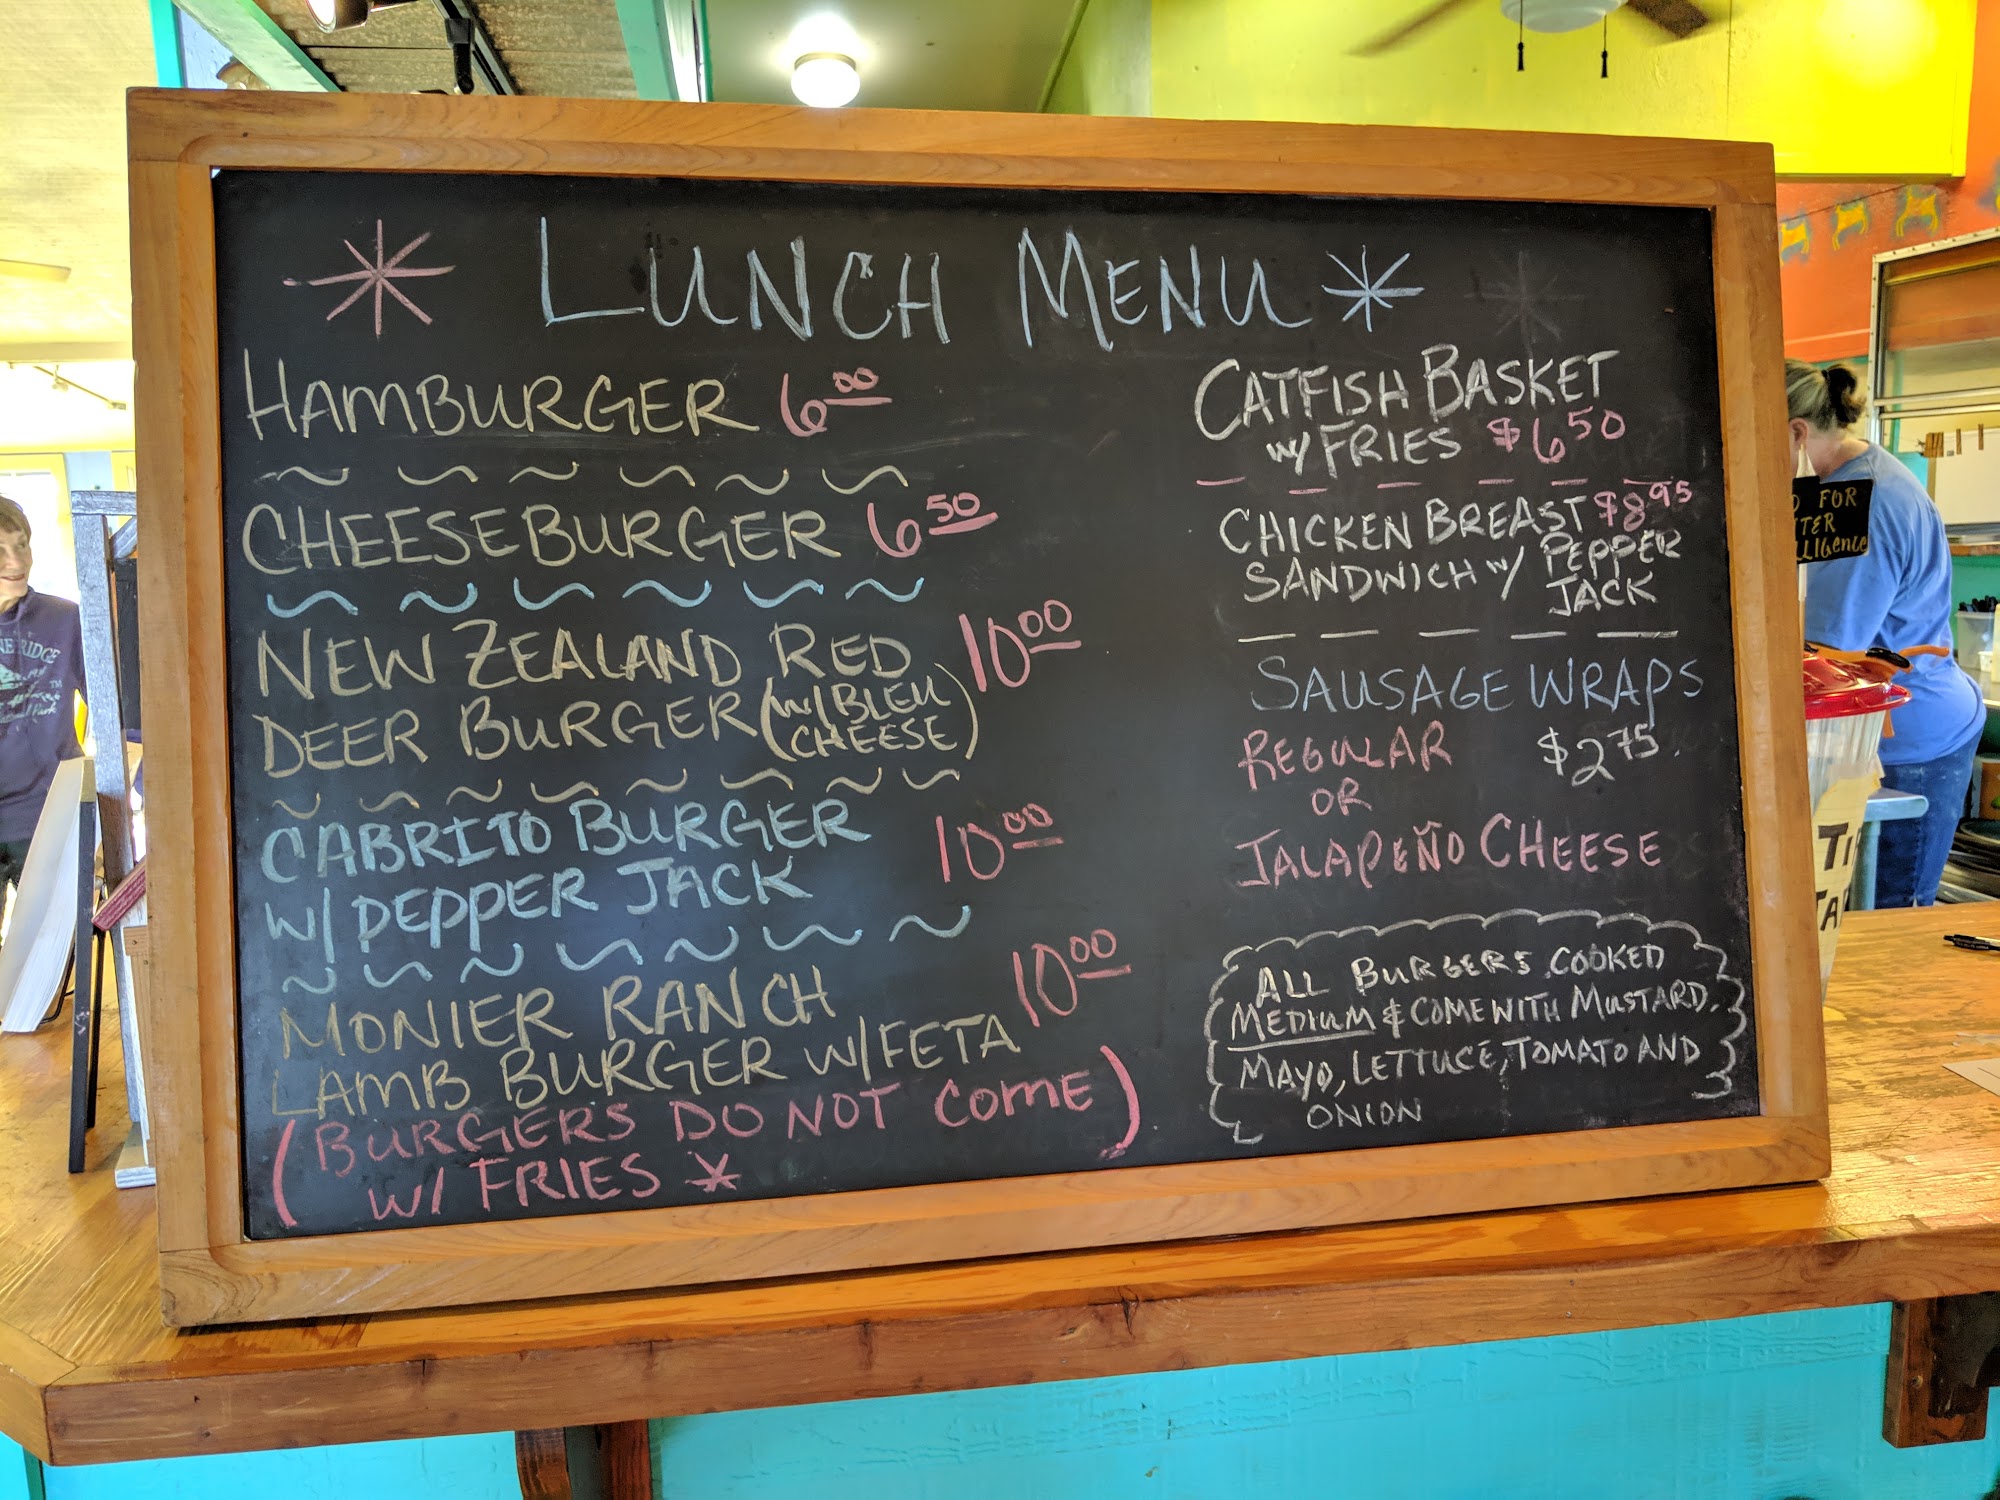 * LUNCH MENU *
HAMBURGER 6.00
CHEESEBURGER 6.50
NEW ZEALAND RED 10.00
DEER BURGER (W/BLEU
CHEESE)
CABRITO BURGER 10.00
W/ PEPPER JACK
MONIER RANCH 10.00
LAMB BURGER W/FETA
(BURGERS DO NOT COME)
W/ FRIES *
CATFISH BASKET
W/ FRIES $6.50
CHICKEN BREAST $8.95
SANDWICH W/ PEPPER
JACK
SAUSAGE WRAPS
REGULAR $2.75
OR
JALAPEÑO CHEESE
ALL BURGERS COOKED
MEDIUM & COME WITH MUSTARD,
MAYO, LETTUCE, TOMATO AND
ONION
FOR
RIDGE